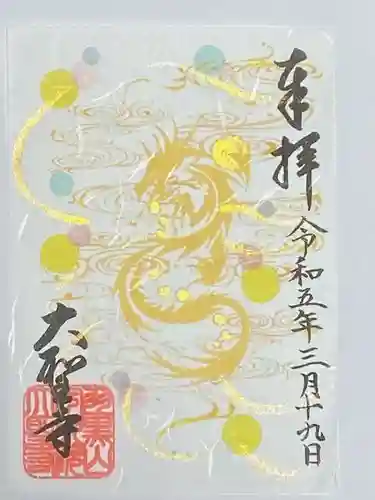 奉拝
令和五年三月十九日
大聖寺